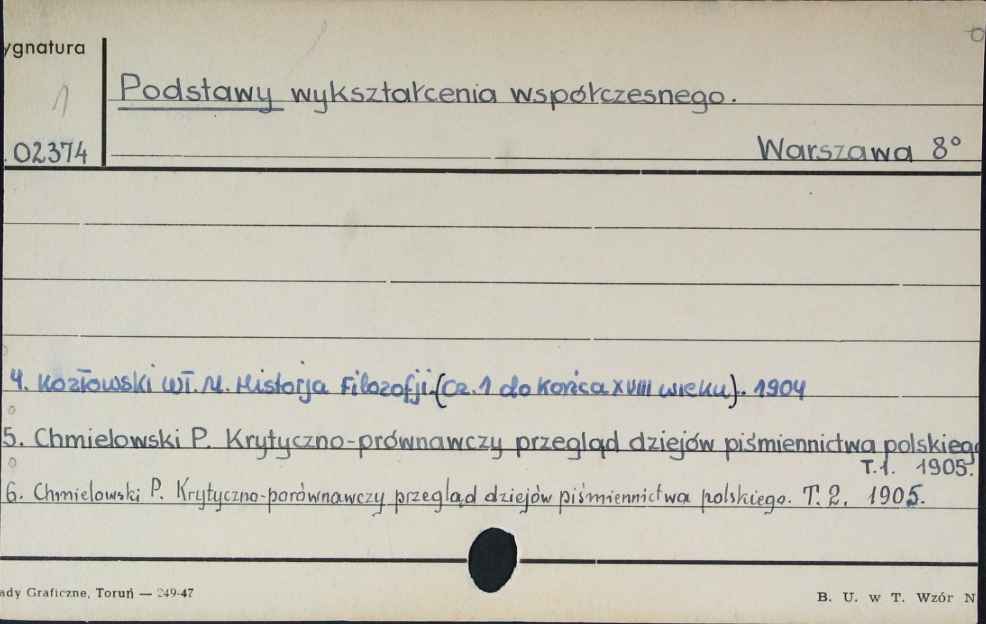 ygnatura
1
Podstawy wykształcenia współczesnego.
02374
Warszawa 8°
4. Kozłowski Wł. M. Historja Filozofji. (Cz. 1 do końca XVIII wieku). 1904
5. Chmielowski P. Krytyczno-prównawczy przegląd dziejów piśmiennictwa polskiego
T.1. 1905.
6. Chmielowski P. Krytyczno-porównawczy przegląd dziejów piśmiennictwa polskiego. T. 2. 1905.
ady Graficzne, Toruń — 249-47
B. U. w T. Wzór N